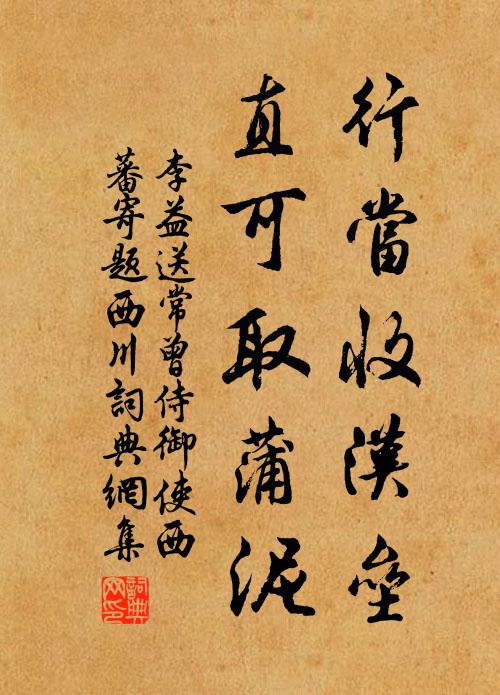 行當收漢壘
直可取蒲泥
李益送常曾侍御使西
蕃寄題西川詞典網集
詞典網印